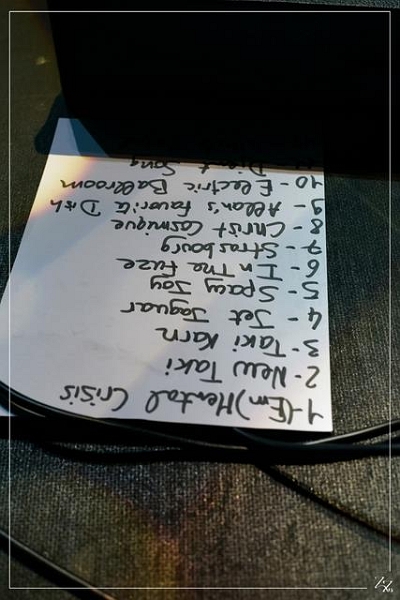 1-(Em)Mental Crisis
2-New Taki
3-Taki Karn
4 - Jet Jaguar
5 - Spacy
6 - In The Fuze
7 - Strasbourg
8 - Christ Cosmique
9 - Allan's Dish
10 - Electric Ballroom
Song